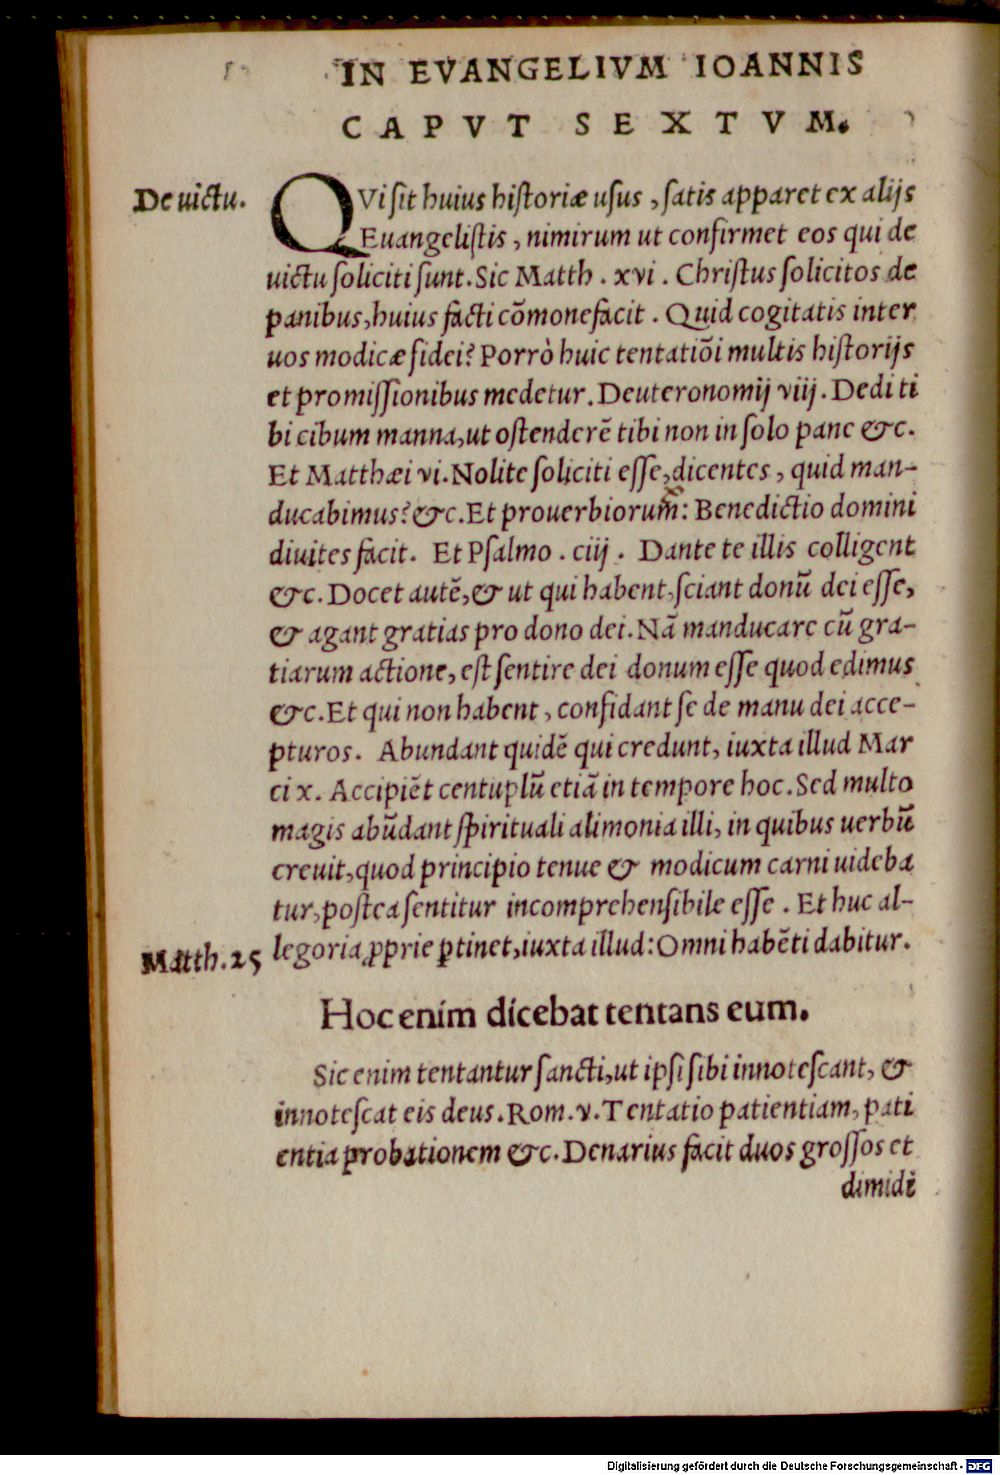 IN EVANGELIVM IOANNIS
CAPVT SEXTVM.
De uictu.
QVi sit huius historiæ usus, satis apparet ex alijs
Euangelistis, nimirum ut confirmet eos qui de
uictu soliciti sunt. Sic Matth. xvi. Christus solicitos de
panibus, huius facti cōmonefacit. Quid cogitatis inter
uos modicæ fidei? Porrò huic tentatiōi multis historijs
et promissionibus medetur. Deuteronomij viij. Dedi ti
bi cibum manna, ut ostenderē tibi non in solo pane &c.
Et Matthæi vi. Nolite soliciti esse, dicentes, quid man-
ducabimus? &c. Et prouerbiorum: Benedictio domini
diuites facit. Et Psalmo. ciij. Dante te illis colligent
&c. Docet autē, & ut qui habent, sciant donū dei esse,
& agant gratias pro dono dei. Nā manducare cū gra-
tiarum actione, est sentire dei donum esse quod edimus
&c. Et qui non habent, confidant se de manu dei acce-
pturos. Abundant quidē qui credunt, iuxta illud Mar
ci x. Accipiēt centuplū etiā in tempore hoc. Sed multo
magis abūdant spirituali alimonia illi, in quibus uerbū
creuit, quod principio tenue & modicum carni uideba
tur, postea sentitur incomprehensibile esse. Et huc al-
Matth. 25
legoria ꝓprie ꝑtinet, iuxta illud: Omni habēti dabitur.
Hoc enim dicebat tentans eum.
Sic enim tentantur sancti, ut ipsi sibi innotescant, &
innotescat eis deus. Rom. v. Tentatio patientiam, pati
entia probationem &c. Denarius facit duos grossos et
dimidi
Digitalisierung gefördert durch die Deutsche Forschungsgemeinschaft - DFG